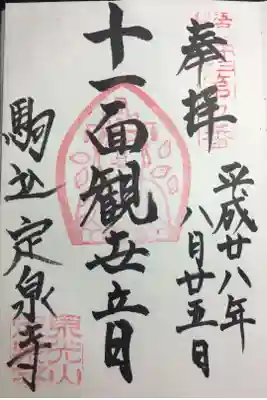 奉拝
平成廿八年
八月廿五日
十一面観世音
駒込定泉寺
東光山